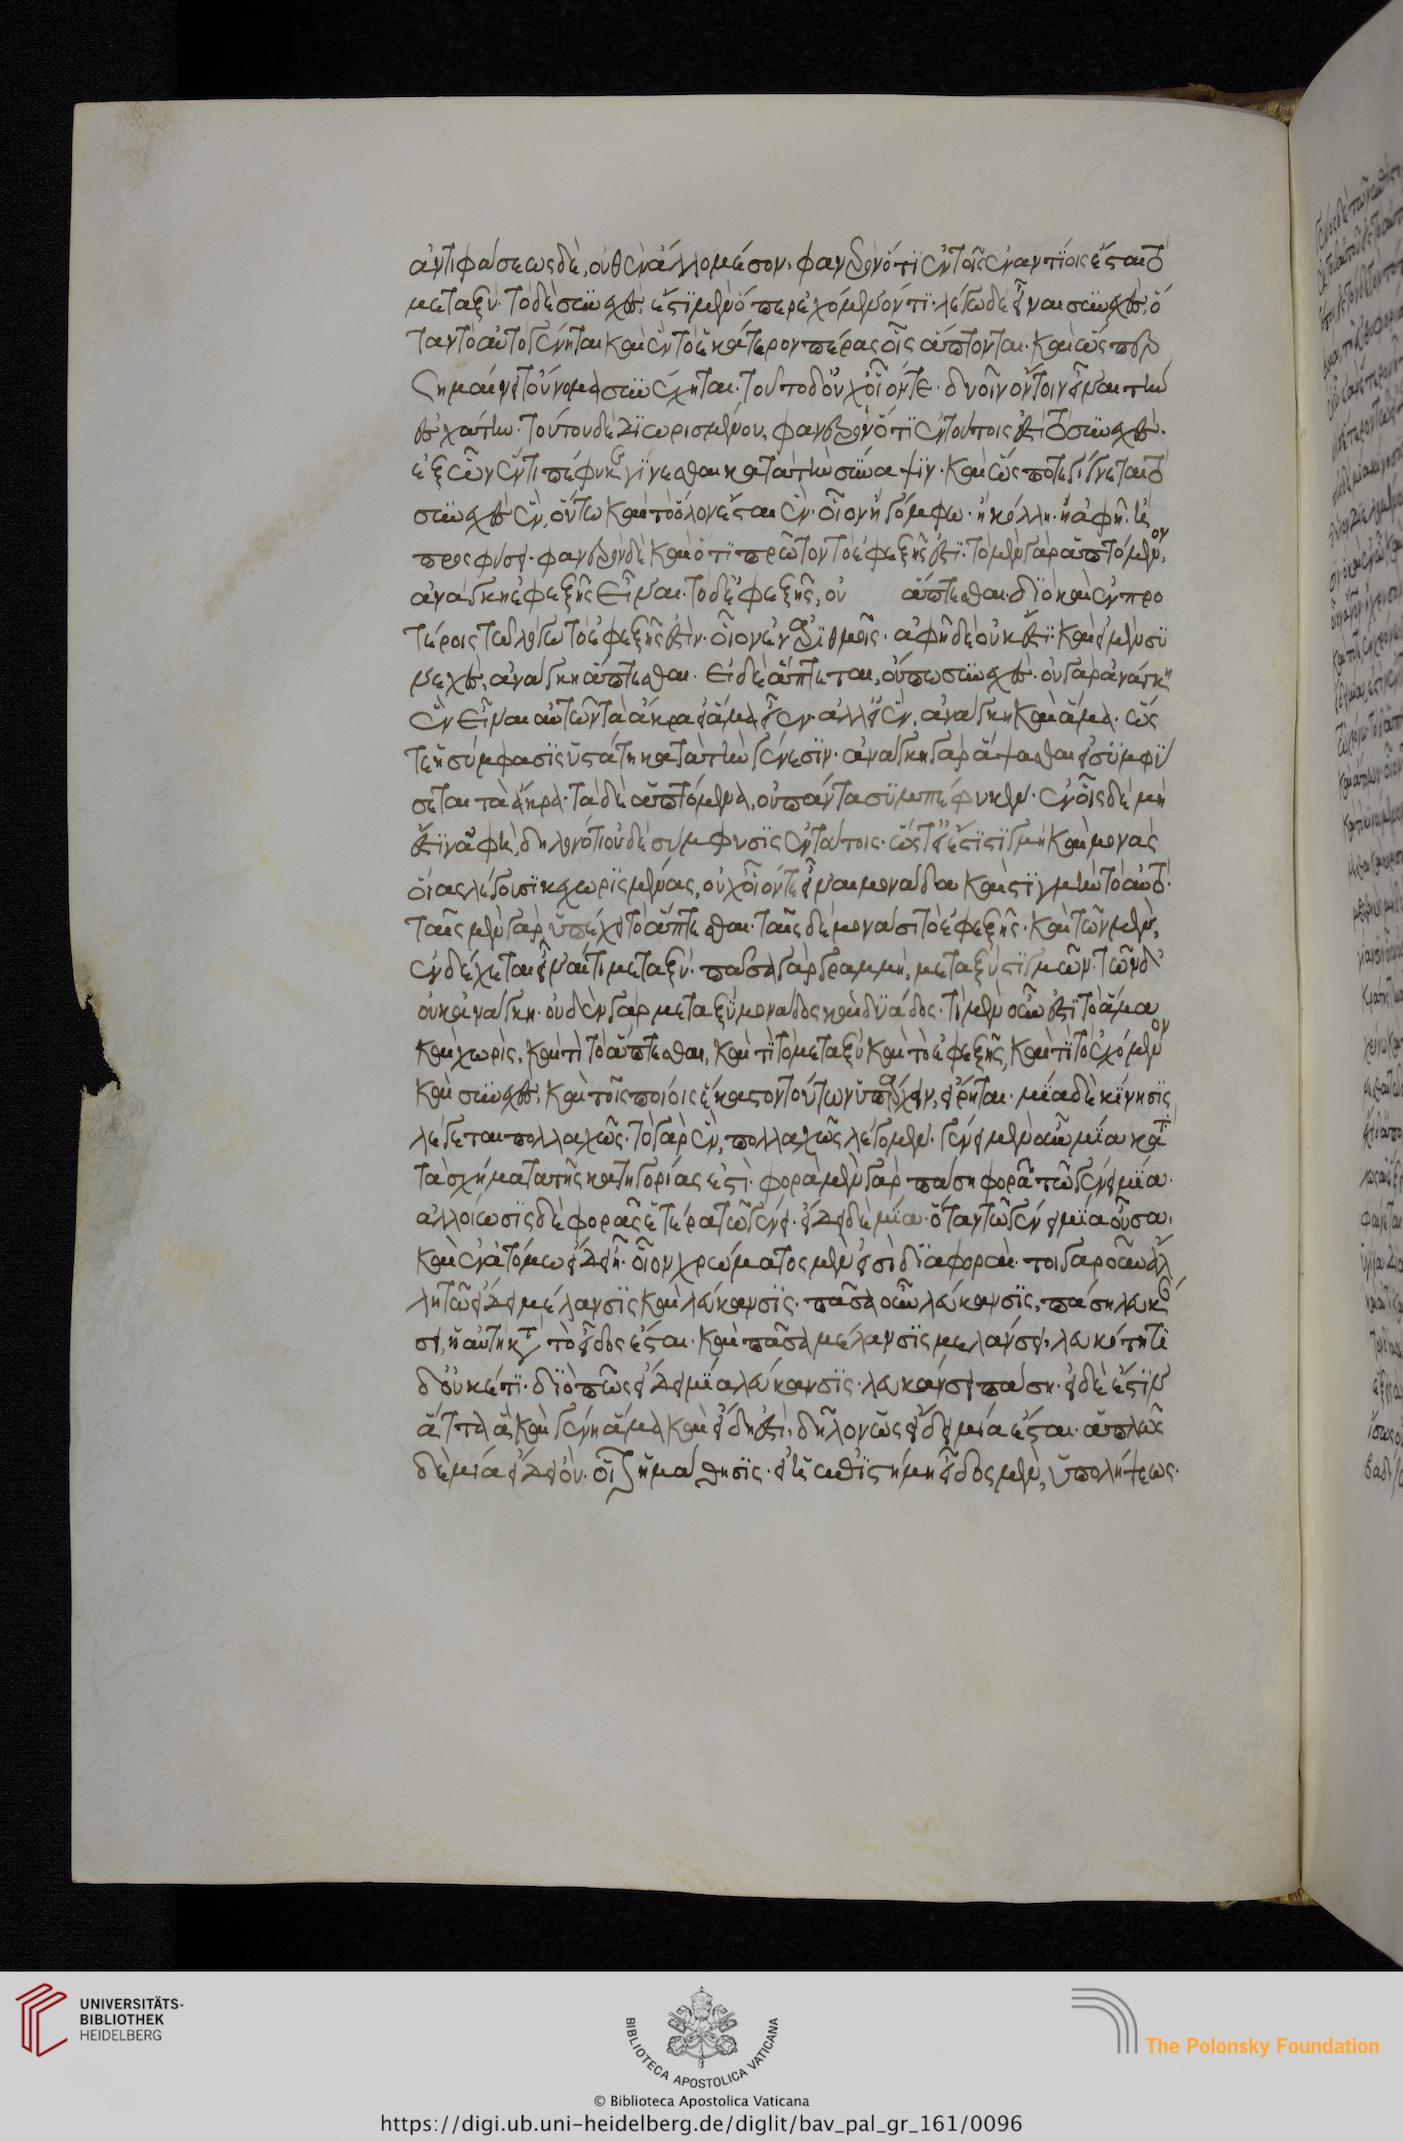 ἀντιφάσεως δὲ, οὐθὲν ἀλλομέσον, φανερὸν ὅτι ἐν τοῖς ἐναντίοις ἔσται τὸ
μεταξύ. τὸ δὲ συνεχὲς, ἔστι μὲν ὅπερ ἐχόμενόν τι. λέγω δὲ εἶναι συνεχὲς, ὅ
ταν τὸ αὐτὸ γένηται καὶ ἓν τὸ ἑκάτερον πέρας οἷς ἅπτονται. καὶ ὥσπερ
σημαίνει τοὔνομα συνέχηται. τοῦτο δ' οὐχ οἷόν τε. δυοῖν ὄντοιν εἶναι τοῖν
ἐσχάτοιν. τούτου δὲ διωρισμένου, φανερὸν ὅτι ἐν τούτοις ἐστὶ τὸ συνεχὲς.
ἐξ ὧν ἕν τι πέφυκε γίνεσθαι κατὰ τὴν σύναψιν. καὶ ὥς ποτε γίγνεται τὸ
συνεχὲς ἓν, οὕτω καὶ τὸ ὅλον ἔσται ἓν. οἷον ἢ γόμφω. ἢ κόλλη. ἢ ἁφῇ. ἢ
προσφύσει. φανερὸν δὲ καὶ ὅτι πρῶτον τὸ ἐφεξῆς ἐστί. τὸ μὲν γὰρ ἁπτόμενον,
ἀνάγκη ἐφεξῆς εἶναι. τὸ δ' ἐφεξῆς, οὐ ἅπτεσθαι. διὸ καὶ ἐν προ
τέροις τῶ λόγω τὸ ἐφεξῆς ἐστὶν. οἷον ἐν ἀριθμοῖς. ἁφὴ δὲ οὐκ ἔστι. καὶ εἰ μὲν συ
νεχὲς, ἀνάγκη ἅπτεσθαι. εἰ δὲ ἅπτεται, οὔπω συνεχὲς. οὐ γὰρ ἀνάγκη
ἓν εἶναι αὐτῶν τὰ ἄκρα εἰ ἅμα εἶεν. ἀλλ' εἰ ἓν, ἀνάγκη καὶ ἅμα. ὥς
τε ἡ σύμφασις ὑστάτη κατὰ τὴν γένεσιν. ἀνάγκη γὰρ ἅψασθαι εἰ συμφύ
σεται τὰ ἄκρα. τὰ δὲ ἁπτόμενα, οὐ πάντα συμπέφυκεν. ἐν οἷς δὲ μή
ἐστιν ἁφὴ, δηλονότι οὐδὲ σύμφυσις ἐν τούτοις. ὥστ' εἰ ἔστι στιγμὴ καὶ μονὰς
οἵας λέγουσι κεχωρισμένας, οὐχ οἷόν τε εἶναι μονάδα καὶ στιγμὴν τὸ αὐτὸ.
ταῖς μὲν γὰρ ὑπάρχει τὸ ἅπτεσθαι. ταῖς δὲ μονάσι τὸ ἐφεξῆς. καὶ τῶν μὲν,
ἐνδέχεται εἶναί τι μεταξύ. πᾶσα γὰρ γραμμὴ, μεταξὺ στιγμῶν. τῶν δ'
οὐκ ἀνάγκη. οὐδὲν γὰρ μεταξὺ μονάδος καὶ δυάδος. τί μὲν οὖν ἐστὶ τὸ ἅμα
καὶ χωρὶς, καὶ τί τὸ ἅπτεσθαι, καὶ τί τὸ μεταξὺ καὶ τὸ ἐφεξῆς, καὶ τί τὸ ἐχόμενον
καὶ συνεχὲς, καὶ τοῖς ποίοις ἕκαστον τούτων ὑπάρχειν, εἴρηται. μία δὲ κίνησις
λέγεται πολλαχῶς. τὸ γὰρ ἓν, πολλαχῶς λέγομεν. γένει μὲν οὖν μία κατὰ
τὰ σχήματα τῆς κατηγορίας ἐστί. φορὰ μὲν γὰρ πάση φορᾶ τῶ γένει μία.
ἀλλοίωσις δὲ φορᾶς ἑτέρα τῶ γένει. εἴδει δὲ μία. ὅταν τῶ γένει μία οὖσα,
καὶ ἐν ἀτόμω εἴδει ᾖ. οἷον χρώματος μὲν εἰσὶ διαφοραί. τοιγαροῦν ἄλ
λη τῶ εἴδει μέλανσις καὶ λεύκανσις. πᾶσα οὖν λεύκανσις, πάση λευκάν
σει, ἡ αὐτὴ κατ τὸ εἶδος ἔσται. καὶ πᾶσα μέλανσις μελάνσει, λευκότητι
δ' οὐκέτι. διὸ πῶς εἴδει μία λεύκανσις. λευκάνσει πάση. εἰ δὲ ἔστιν
ἄττα ἃ καὶ γένη ἅμα καὶ εἴδη ἐστί, δῆλον ὡς εἴδει μία ἔσται. ἁπλῶς
δὲ μία εἴδει οὔ. οἷον ἡ μάθησις. εἰ ἡ ἐπιστήμη εἶδος μὲν, ὑπολήψεως.
UNIVERSITÄTS-
BIBLIOTHEK
HEIDELBERG
BIBLIOTECA APOSTOLICA VATICANA
The Polonsky Foundation
© Biblioteca Apostolica Vaticana
https://digi.ub.uni-heidelberg.de/diglit/bav_pal_gr_161/0096